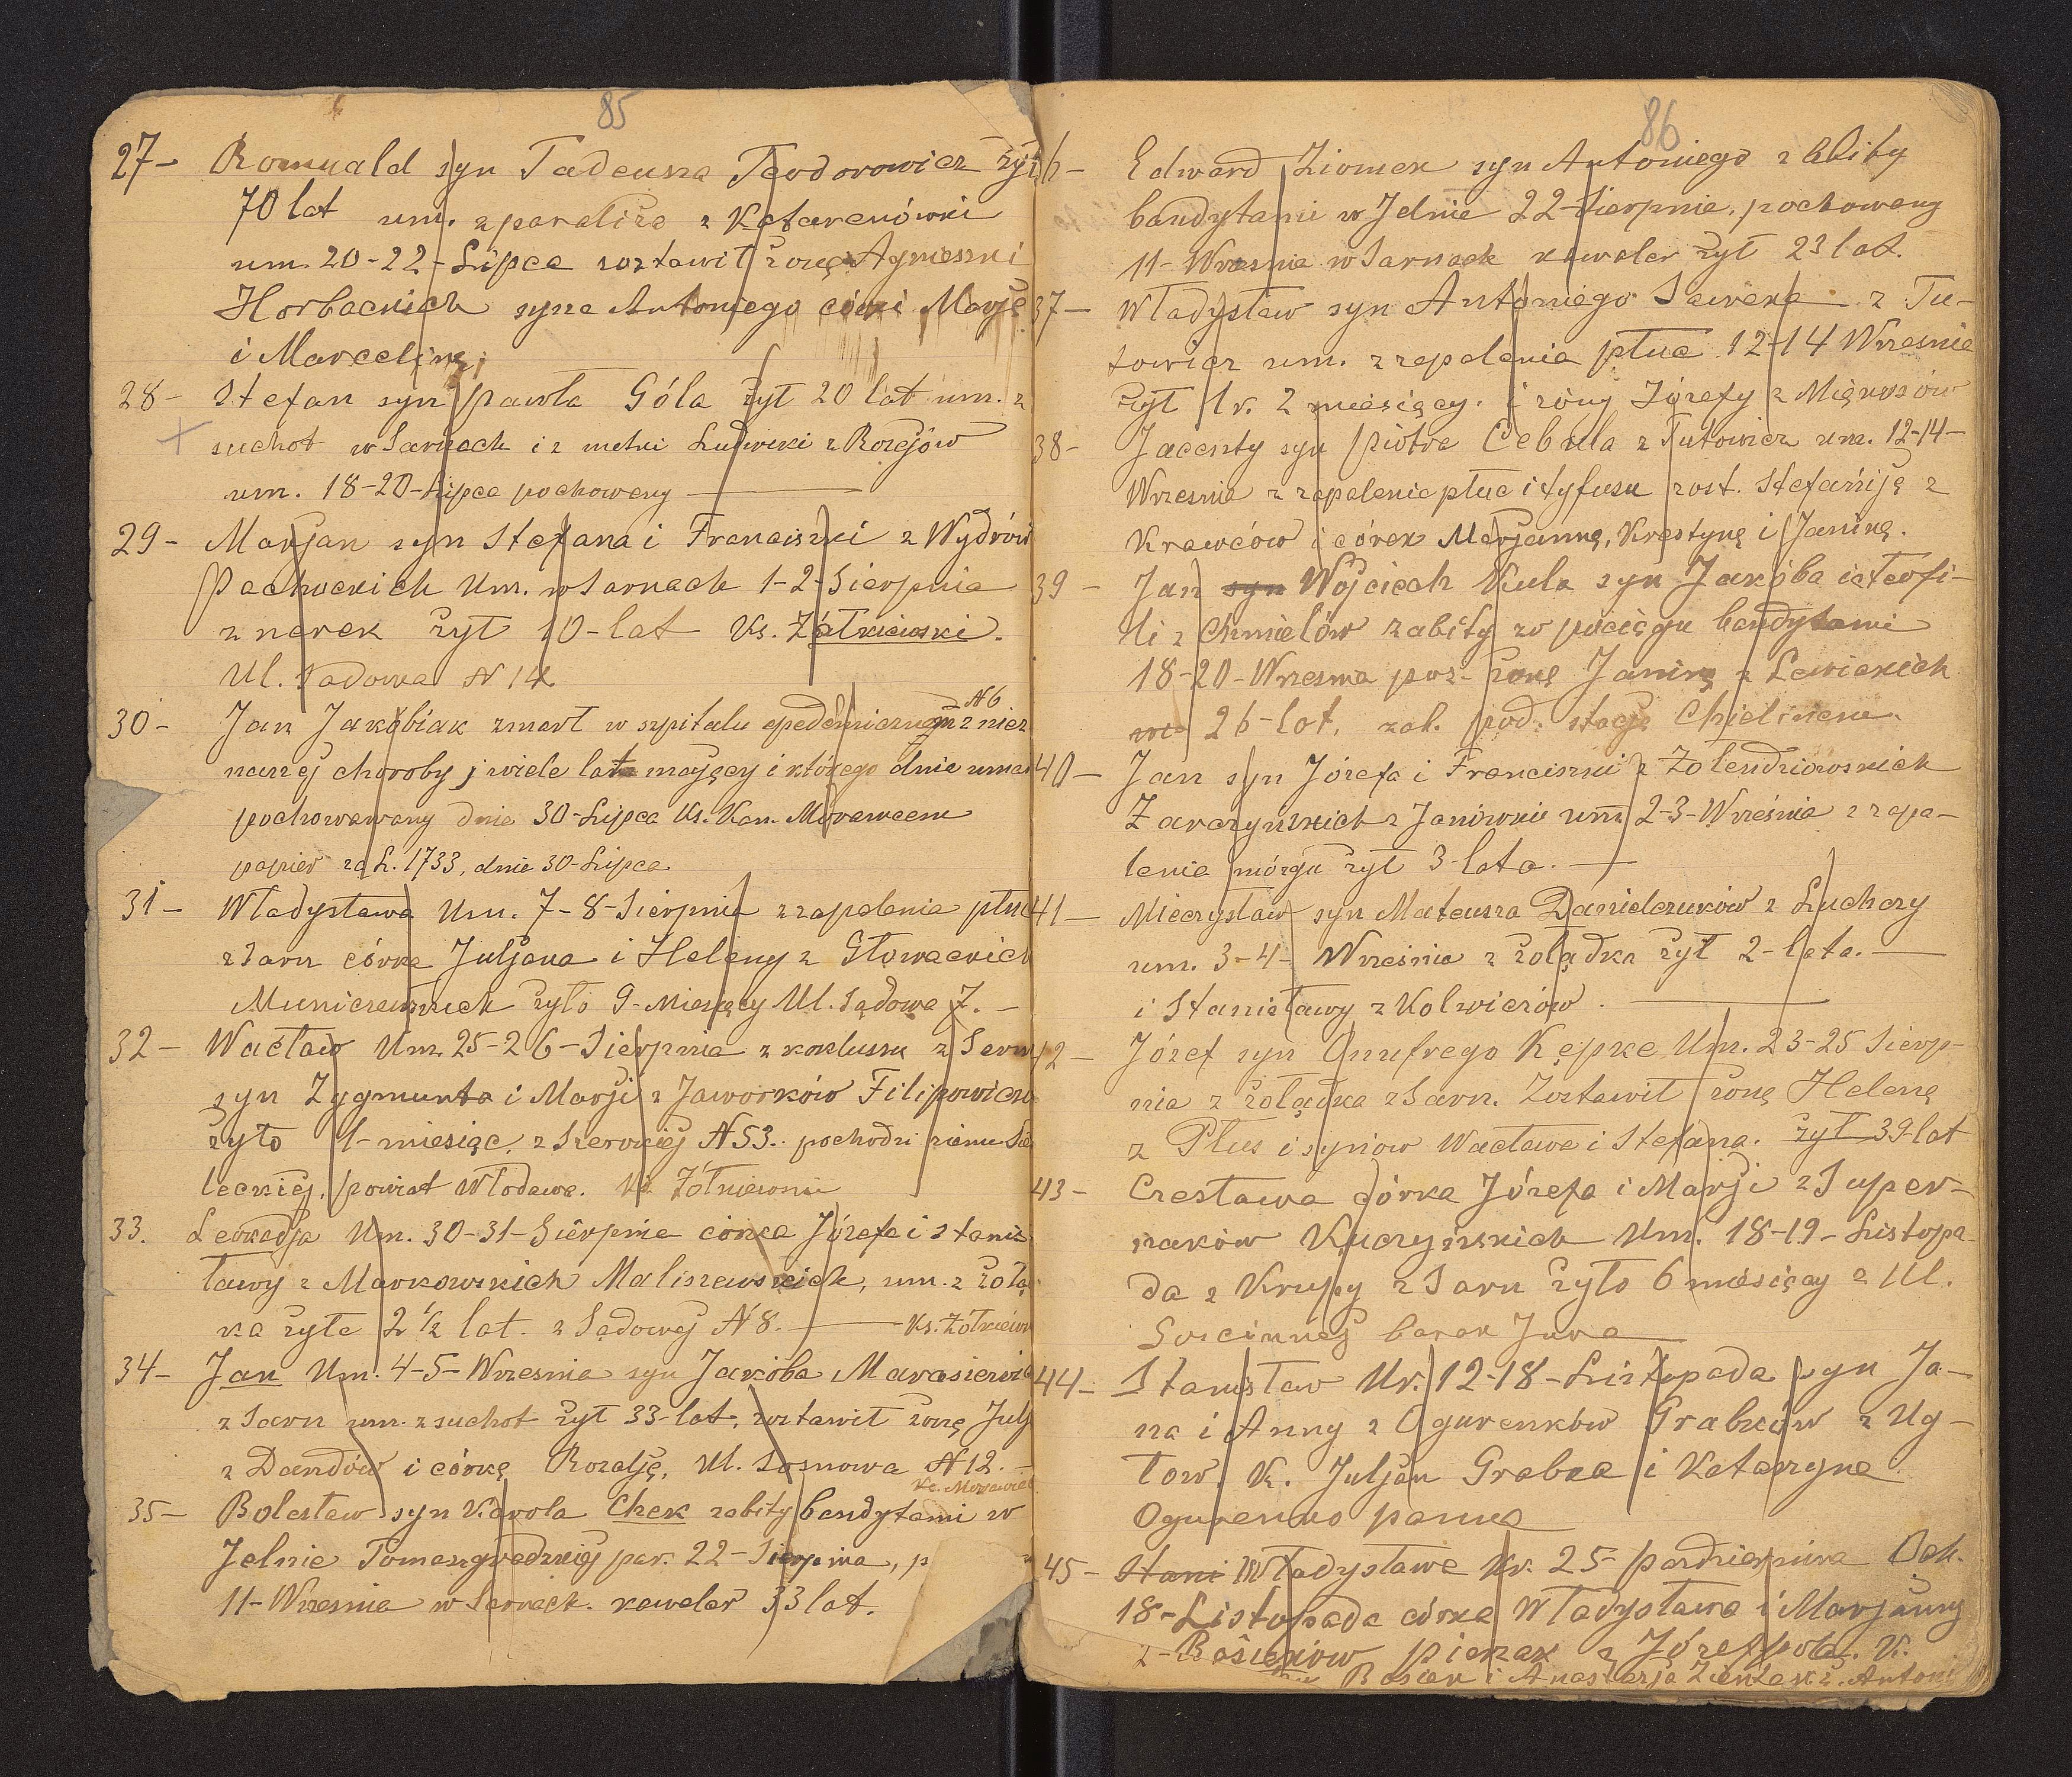 85
27- Romuald syn Tadeusza Teodorowicz żył
70 lat um. z paraliża z Katarenówki
um. 20-22-Lipca zostawił żonę Agnieszki
Horbackich syna Antoniego córki Marję
i Marcelinę.
28- Stefan syn Pawła Góla żył 20 lat um. z
suchot w Sarnach i z matki Ludwiki z Rozejów
um. 18-20-Lipca pochowany
29- Marjan syn Stefana i Franciszki z Wydrów
Pachockich Um. w Sarnach 1-2-Sierpnia
z nerek żył 10-lat Ks. Żółkiewski.
Ul. Sadowa N 14
30- Jan Jakóbiak zmarł w szpitalu epedemicznem N6 z niez
nanej choroby, j wiele lat mający i którego dnia umar
pochowawany dnia 30-Lipca Ks. Kan. Morawcem
papier za L. 1733, dnia 30-Lipca
31- Władysława Um. 7-8-Sierpnia z zapalenia płuc
z Sarn córka Juljana i Heleny z Głowackich
żyło 9-Miesięcy Ul. Sądowa 7.-
32- Wacław Um. 25-26-Sierpnia z kokluszu z Sarn
syn Zygmunta i Marji z Jaworków Filipowicz
żyło 1-miesiąc. z Szerokiej N 53. pochodzi ziemi Sie
leckiej, powiat Włodawa. Ks. Żółkiewski
33. Leokadja Um. 30-31-Sierpnia córka Józefa i Stanis
ławy z Markowskich Maliszewskich, um. z żołą
ka żyła 2 1/2 lat. z Sądowej N 8. Ks. Żółkiew
34- Jan Um. 4-5-Wrzesnia syn Jakóba Marasiewic
z Sarn um. z suchot żył 33-lat, zostawił żonę Julj
z Dandów i córkę Rozalję, Ul. Sosnowa N 12.-
Ks. Morawiec
35- Bolesław syn Karola Chek zabity bandytami w
Jelnie Tomaszgrodzkiej par. 22-Sierpnia, p
11-Wrzesnia w Sarnach. kawaler 33 lat.
86
36- Edward Ziomek syn Antoniego zabity
bandytami w Jelnie 22-Sierpnia, pochowany
11-Wrzesnia w Sarnach kawaler żył 23 lat.
37- Władysław syn Antoniego Saweka z Tu-
towicz um. z zapalenia płuc 12-14 Wrzesnia
żył 1 r. 2 miesięcy. i żony Józefy z Miękosów
38- Jacenty syn Piotra Cebula z Tutowicz um. 12-14-
Wrzesnia z zapalenia płuc i tyfusu zost. Stefańiję z
Krawców i córek Marjannę, Krestynę i Janinę.
39- Jan syn Wojciech Kula syn Jakóba i Teofi-
li z Chmielów zabity w pociągu bandytami
18-20-Wrzesnia poz- żonę Janinę z Lewickich
26-lat. zab. pod. stacje
40- Jan syn Józefa i Franciszki z Żolendziowskich
Zarczyńskich z Janówki um 2-3-Wrześnie z zapa-
lenia mózgu żył 3-lata.
41- Mieczysław syn Mateusza Danielczuków z Luchczy
um. 3-4-Wrześnie z żolądka żył 2-lata.
i Stanisławy z Kolwiczów.
42- Józef syn Onufrego Kępka Um. 23-25 Sierp-
nia z żołądka z Sarn. Zostawił żonę Helenę
z Plus i synów Wacława i Stefana. żył 39 lat
43- Czesława córka Józefa i Marji z Super-
naków Kuczyńskich Um. 18-19-Listopa-
da z Krupy z Sarn żyło 6 miesięcy z Ul.
Goscinnej barak
44- Stanisław Ur. 12-18-Listopada syn Ja-
na i Anny z Ogurenków Grabków z Ug-
łow. K. Juljan Grabka i Katarzyna
Ogurenko panna
45- Stani Władysława Ur. 25-pazdziernika Och.
18-Listopada córka Władysława i Marjanny
z-Bosiaków Piekzak z Józefpola. K.
Bosiak i Anastazja Antoni